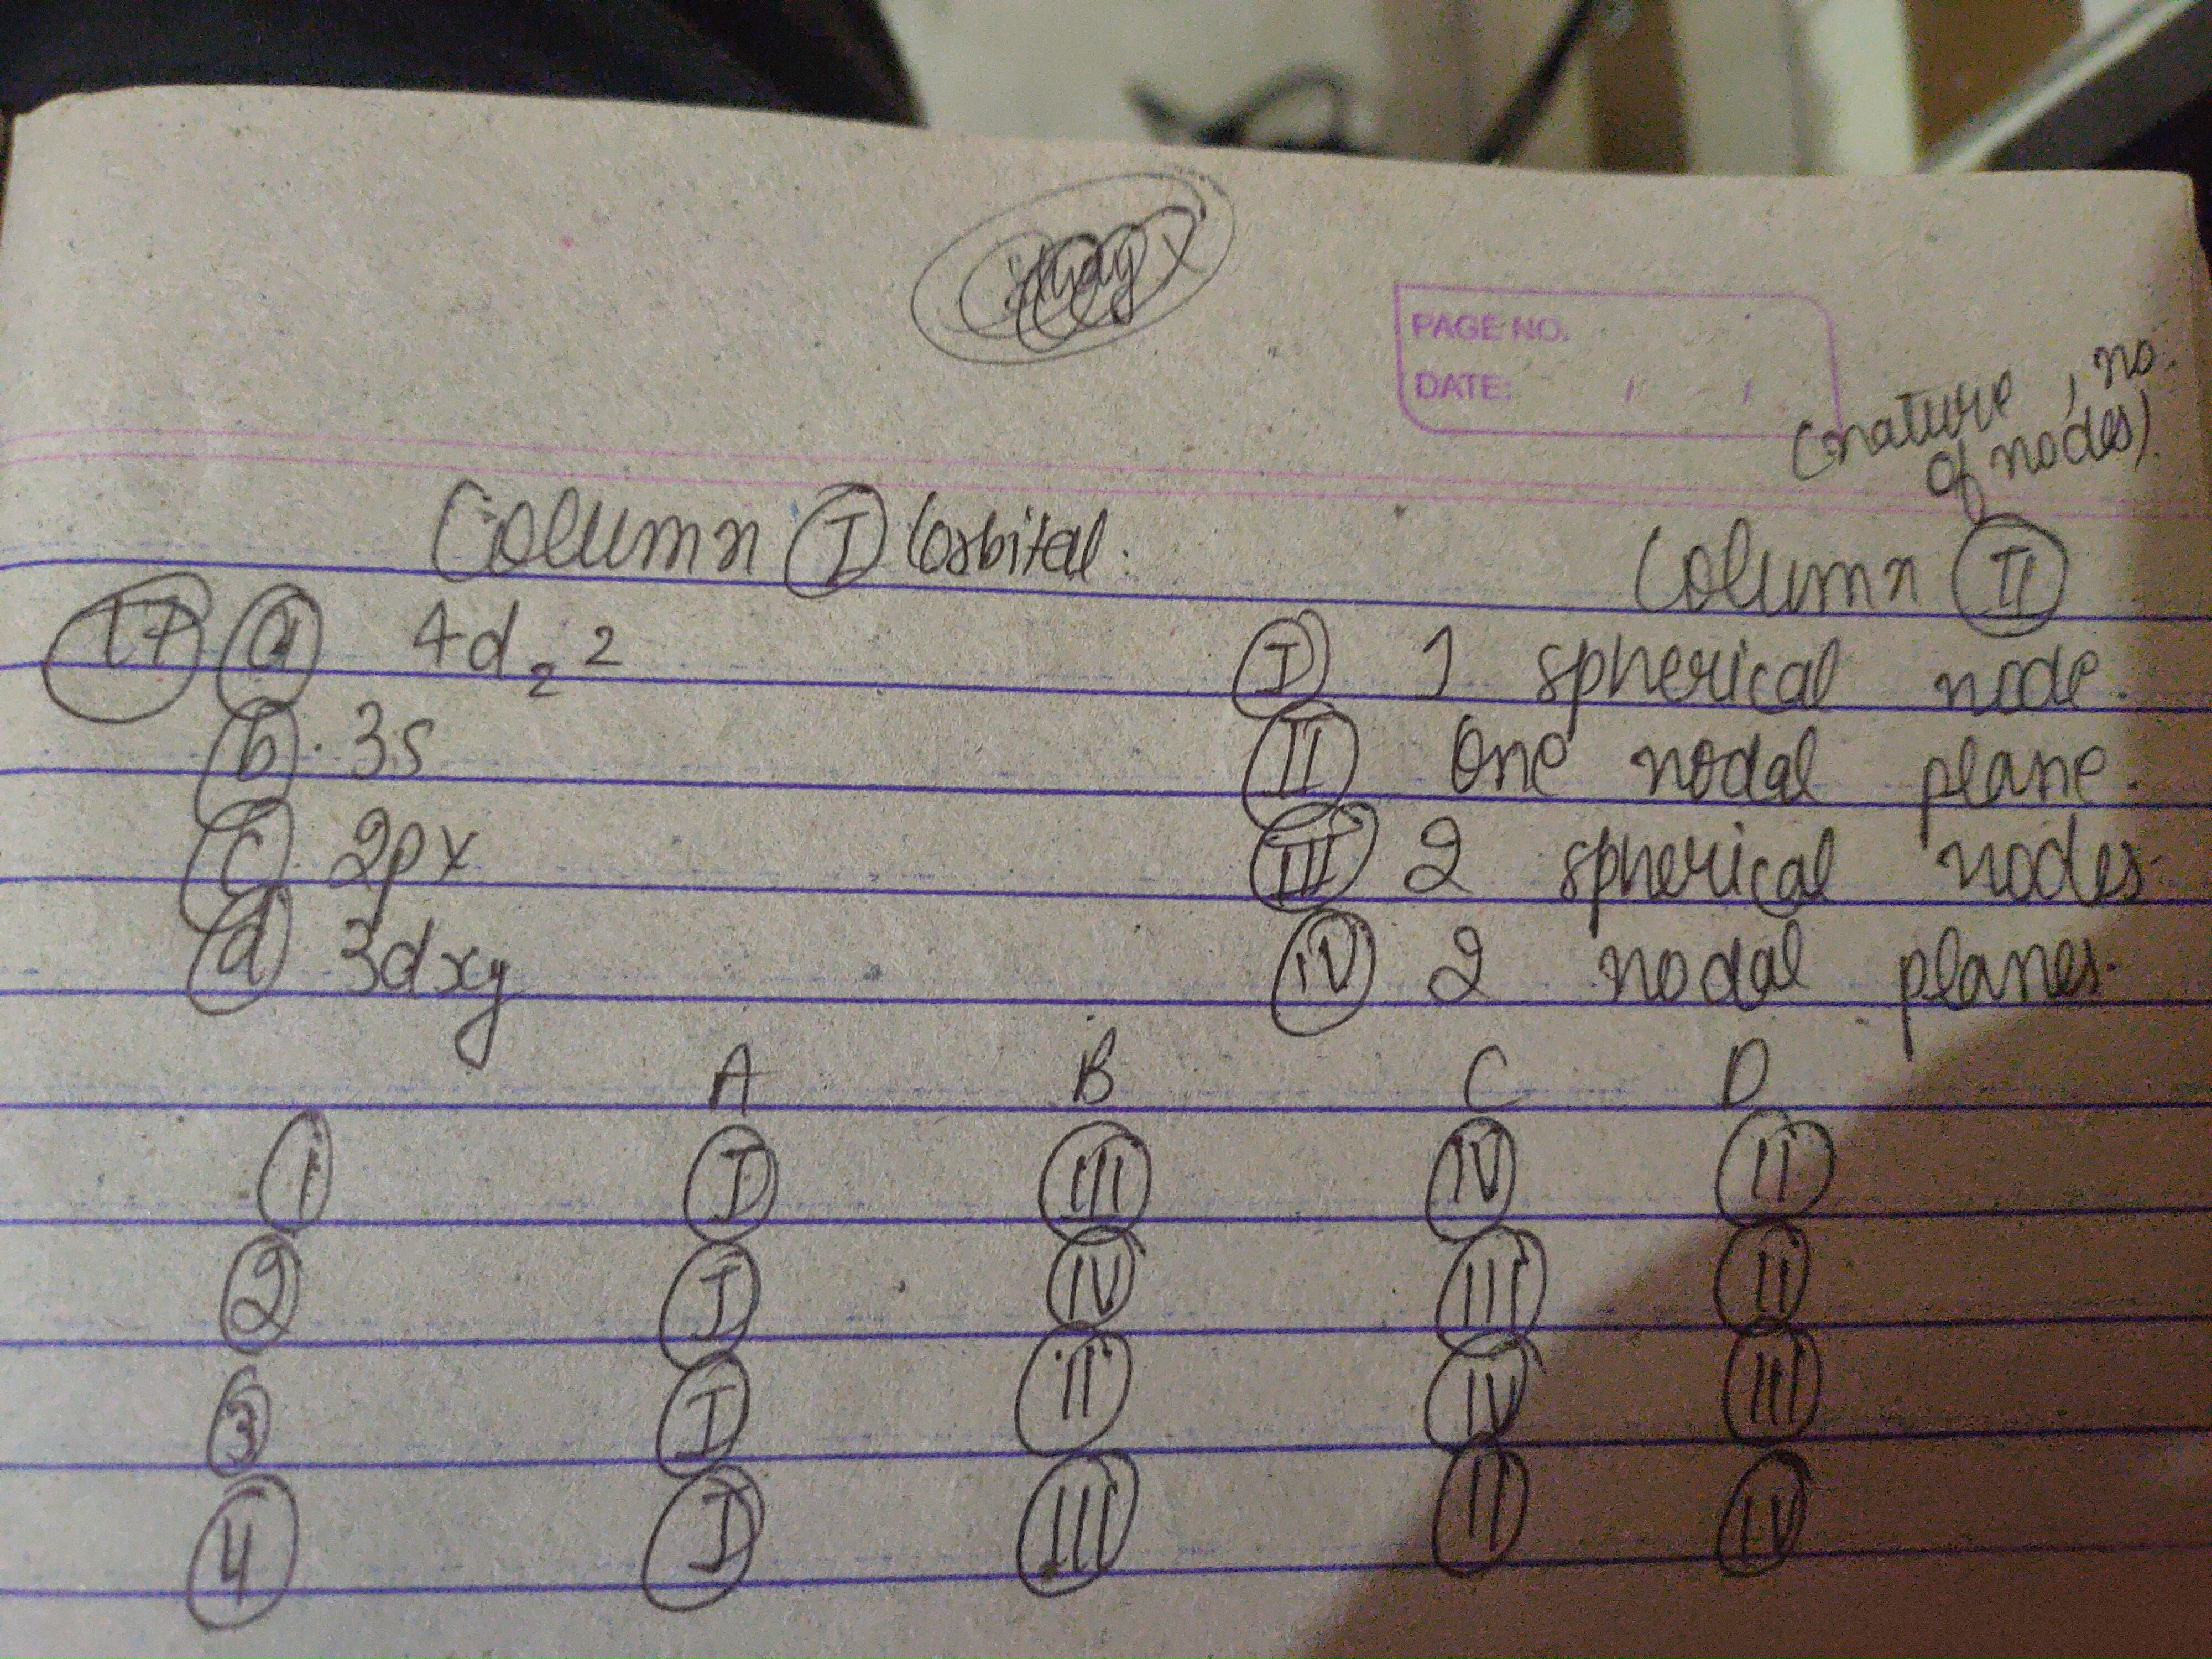 PAGE NO.
DATE: / /
(nature, no.
of nodes).
Column I (orbital.
Column II
17 a 4d z 2
I 1 spherical node.
b. 3s
II One nodal plane.
c. 2px
III 2 spherical nodes.
d 3dxy
IV 2 nodal planes.
A B C D
1 I III IV II
2 I IV III II
3 I II IV III
4 I III II IV